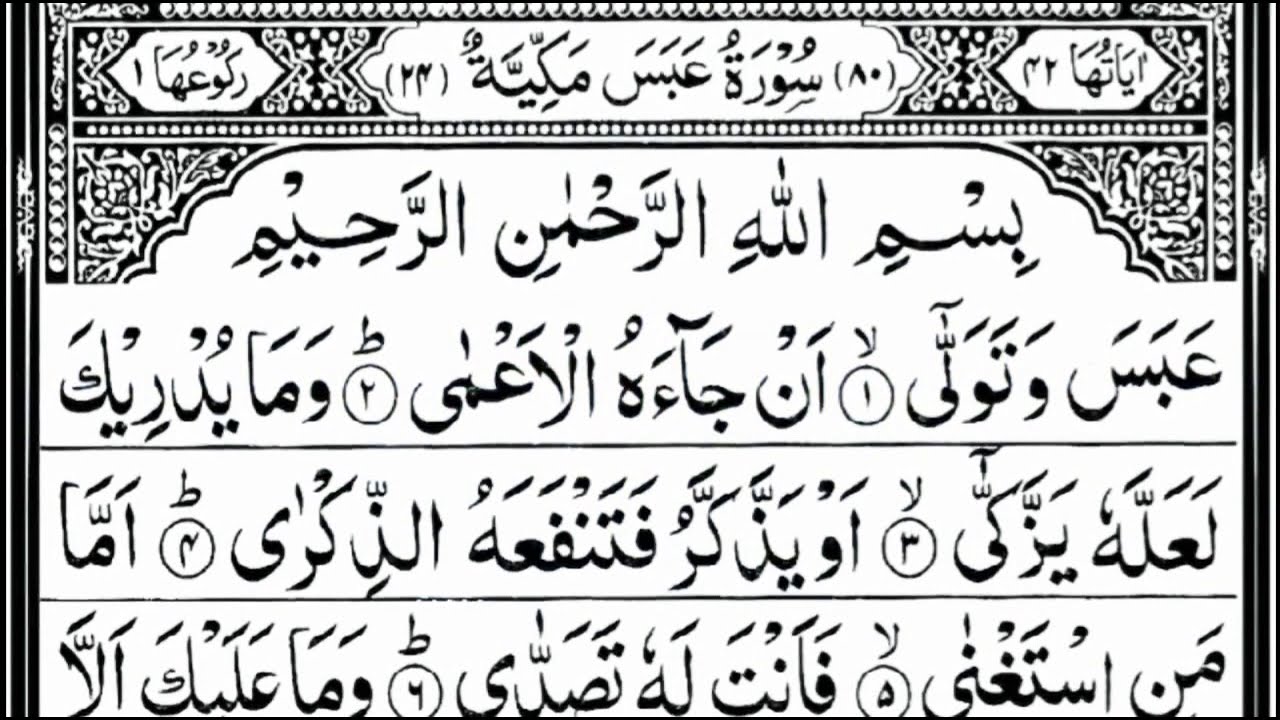 اٰيَاتُهَا ۴۲ (۸۰) سُوْرَةُ عَبَسَ مَكِّيَّةٌ (۲۴) رُكُوْعُهَا ۱
بِسْمِ اللّٰهِ الرَّحْمٰنِ الرَّحِيْمِ
عَبَسَ وَتَوَلّٰٓى ۙ‏﴿۱﴾ اَنْ جَآءَهُ الْاَعْمٰى ؕ‏﴿۲﴾ وَمَا يُدْرِيْكَ
لَعَلَّهٗ يَزَّكّٰٓى ۙ‏﴿۳﴾ اَوْ يَذَّكَّرُ فَتَنْفَعَهُ الذِّكْرٰى ؕ‏﴿۴﴾ اَمَّا
مَنِ اسْتَغْنٰى ۙ‏﴿۵﴾ فَاَنْتَ لَهٗ تَصَدّٰى ؕ‏﴿۶﴾ وَمَا عَلَيْكَ اَلَّا